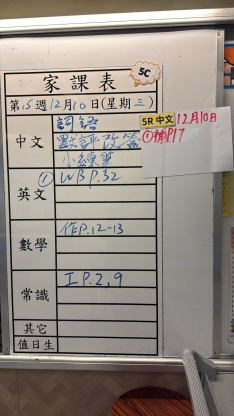 家課表
5C
第15週12月10日(星期三)
中文
詞語
點評改簽
小練筆
① WB P.32
英文
數學
作P.12-13
常識
I P.2,9
其它
值日生
5R 中文 12月10日
①補P17